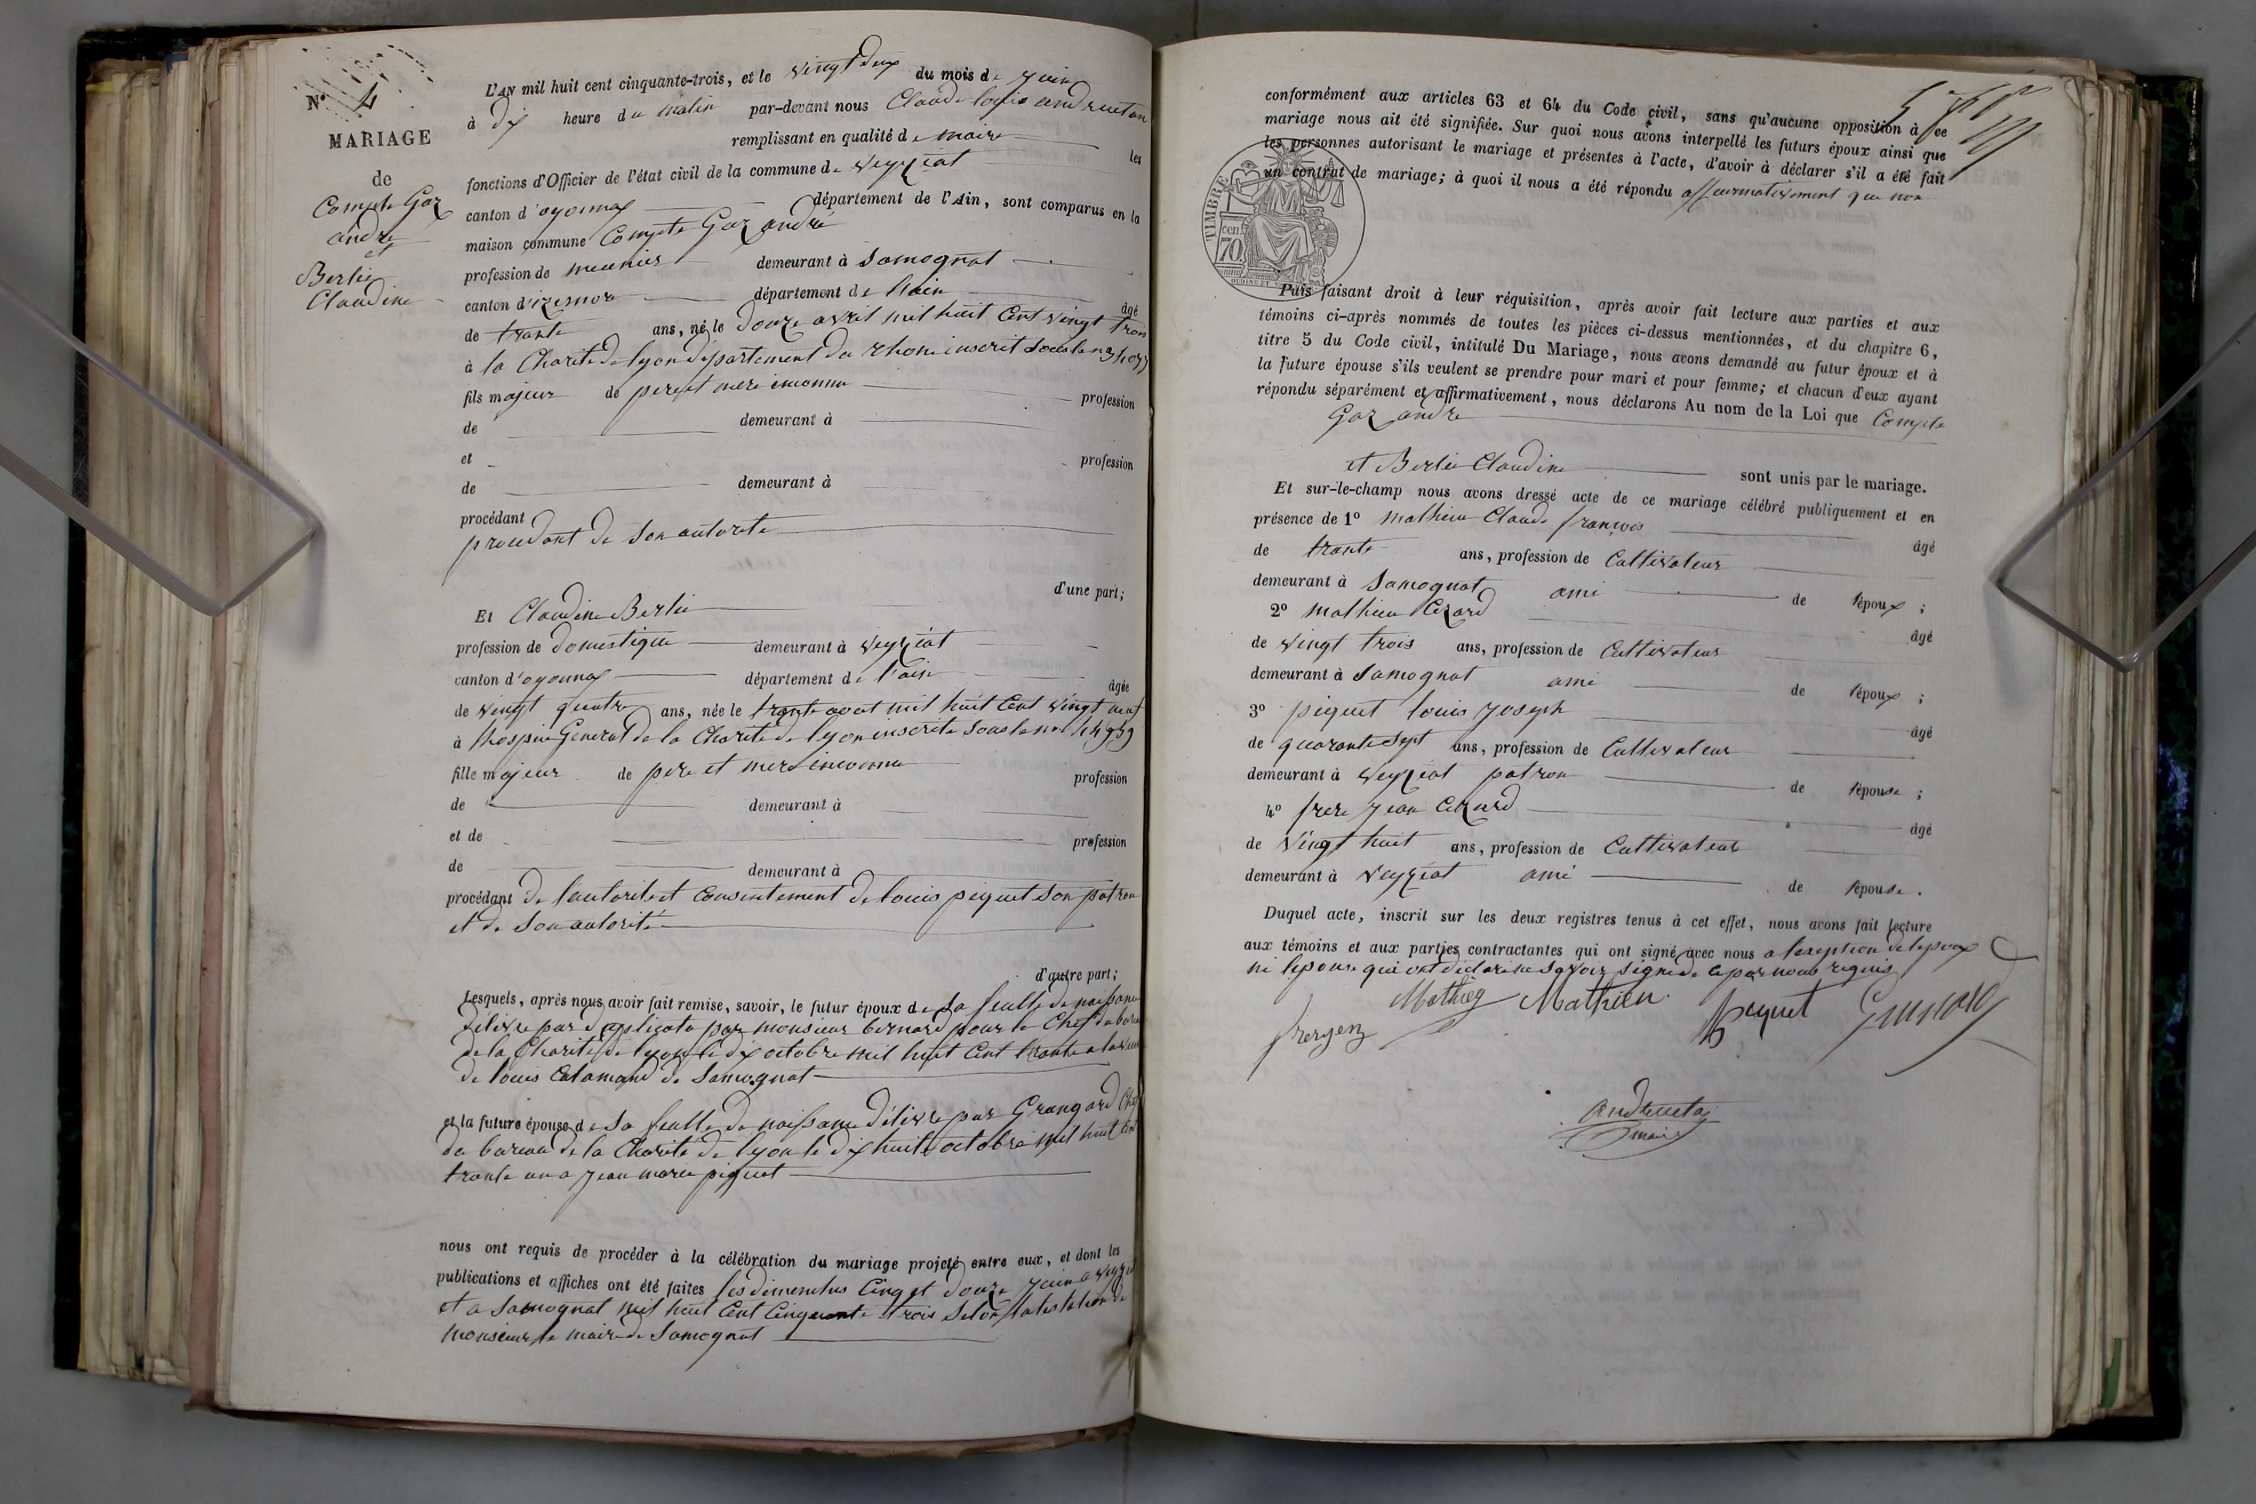 N° 4
MARIAGE
de
Compte Gaz
andré
et
Berlie
Claudine
L'AN mil huit cent cinquante-trois, et le vingt deux du mois de juin
à dix heure du matin par-devant nous Claude louis andruetan
remplissant en qualité de maire les
fonctions d'Officier de l'état civil de la commune de veyziat
canton d'oyonnax département de l'Ain, sont comparus en la
maison commune Compte Gaz andré
profession de meunier demeurant à Samognat
canton d'izernore département de l'ain âgé
de trante ans, né le douze avril mil huit Cent vingt trois
à la Charité de lyon département du rhone inscrit sous le n°
fils majeur de pere et mere inconnu profession
de demeurant à
et profession
de demeurant à
procédant
procedant de son autorite
d'une part;
Et Claudine Berlie
profession de domestique demeurant à veyziat
canton d'oyonnax département de l'ain âgée
de vingt quatre ans, née le trante aout mil huit Cent vingt neuf
à l'hospice General de la Charité de lyon inscrite sous le n°
fille majeur de pere et mere inconnu profession
de demeurant à
et de profession
de demeurant à
procédant de l'autorité et consentement de louis piquet son patron
et de son autorité
d'autre part;
Lesquels, après nous avoir fait remise, savoir, le futur époux de sa feulle de naissance
délivre par duplicata par monsieur bernard pour le Chef du bureau
de la Charité de lyon le dix octobre mil huit Cent trante a la
de louis Calamard de Samognat
et la future épouse de sa feulle de naissance délivre par Grangard Chef
du bureau de la Charité de lyon le dix huit octobre mil huit Cent
trante un a jean marie piquet
nous ont requis de procéder à la célébration du mariage projeté entre eux, et dont les
publications et affiches ont été faites les dimenches Cinq et douze juin a veyziat
et a Samognat mil huit Cent Cinquante trois selon l'atestation de
monsieur le maire de Samognat
conformément aux articles 63 et 64 du Code civil, sans qu'aucune opposition à ce
mariage nous ait été signifiée. Sur quoi nous avons interpellé les futurs époux ainsi que
les personnes autorisant le mariage et présentes à l'acte, d'avoir à déclarer s'il a été fait
un contrat de mariage; à quoi il nous a été répondu affirmativement que non
TIMBRE
70 cen.
Puis faisant droit à leur réquisition, après avoir fait lecture aux parties et aux
témoins ci-après nommés de toutes les pièces ci-dessus mentionnées, et du chapitre 6,
titre 5 du Code civil, intitulé Du Mariage, nous avons demandé au futur époux et à
la future épouse s'ils veulent se prendre pour mari et pour femme; et chacun d'eux ayant
répondu séparément et affirmativement, nous déclarons Au nom de la Loi que Compte
Gaz andre
et Berlie Claudine sont unis par le mariage.
Et sur-le-champ nous avons dressé acte de ce mariage célébré publiquement et en
présence de 1° Mathieu Claude françois âgé
de trante ans, profession de Cultivateur
demeurant à Samognat ami de l'époux ;
2° Mathieu Cezard âgé
de vingt trois ans, profession de Cultivateur
demeurant à Samognat ami de l'époux ;
3° piquet louis joseph âgé
de quarante sept ans, profession de Cultivateur
demeurant à veyziat patron de l'épouse ;
4° frere jean Cezard âgé
de vingt huit ans, profession de Cultivateur
demeurant à veyziat ami de l'épouse.
Duquel acte, inscrit sur les deux registres tenus à cet effet, nous avons fait lecture
aux témoins et aux parties contractantes qui ont signé avec nous a l'exeption de l'epoux
ni l'epouse qui ont déclaré ne savoir signé de ce par nous requis
Mathieu Mathieu piquet
maire